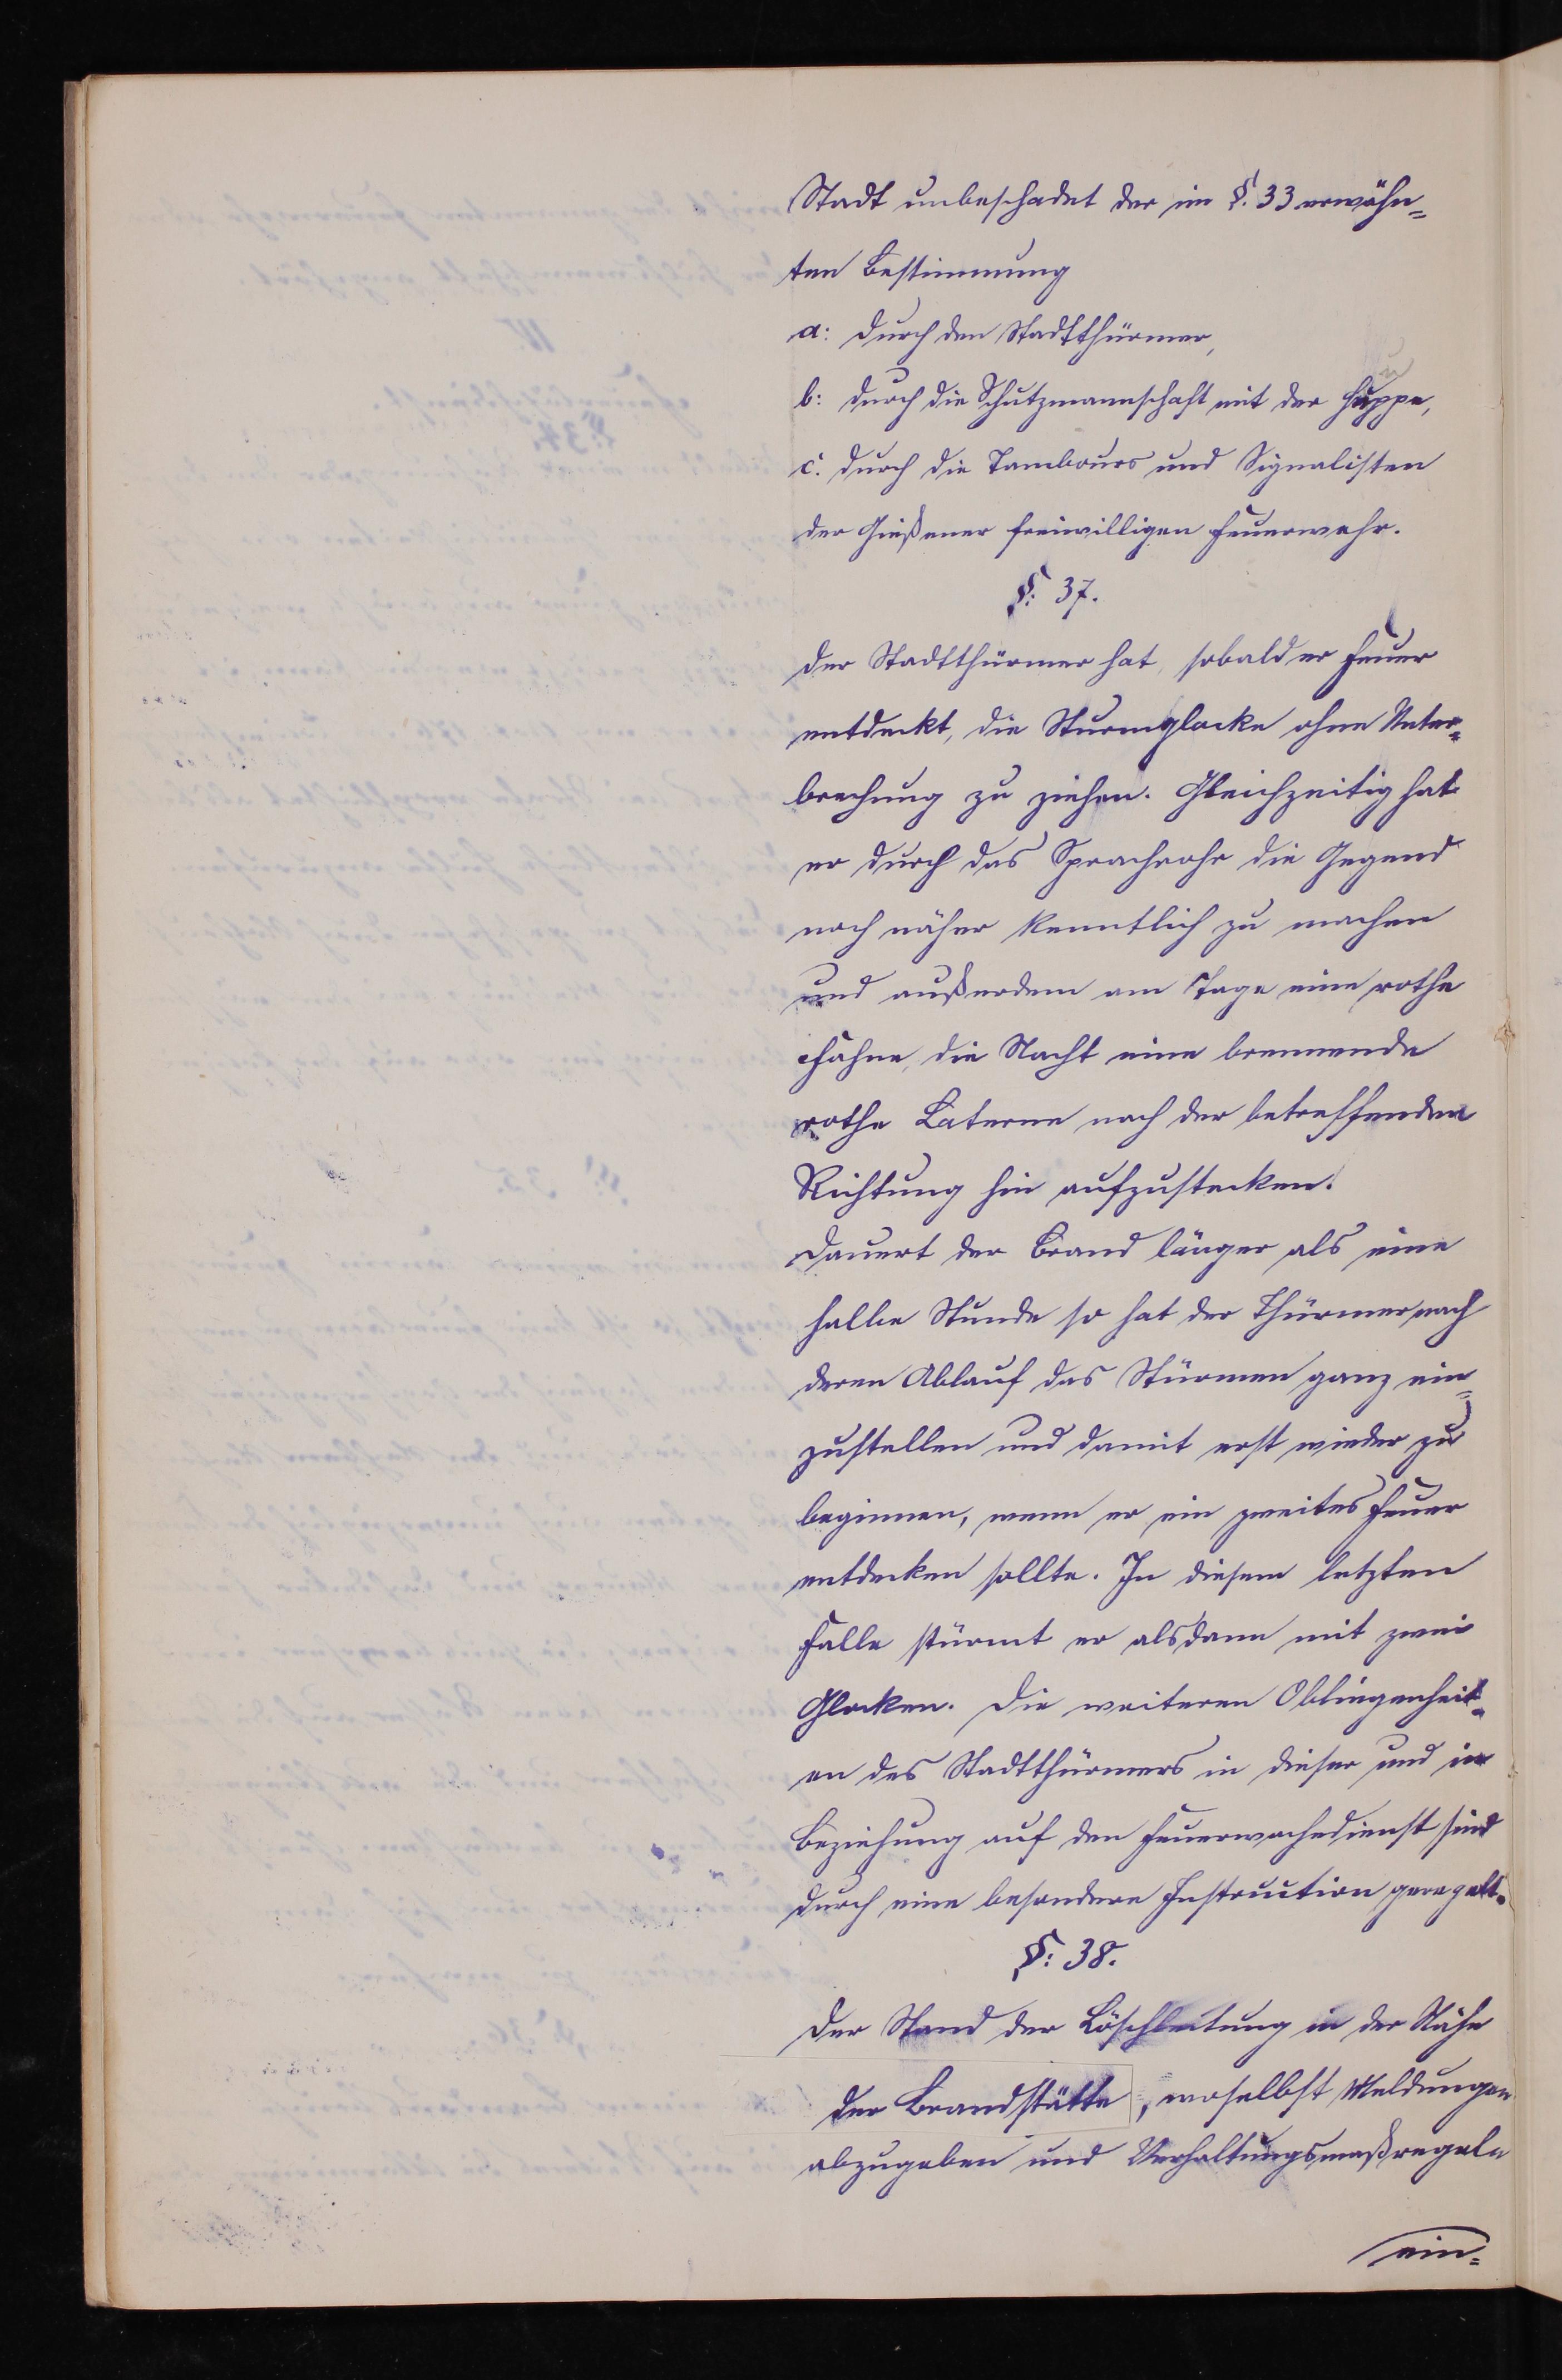 Stadt unbeschadet der im §. 33 erwähn=
ten Bestimmung
a: durch den Stadtthürmer,
b: durch die Schutzmannschaft mit der Huppe,
c. durch die Tambours und Signalisten
der Gießener freiwilligen Feuerwehr.
§: 37.
Der Stadtthürmer hat, sobald er Feuer
entdeckt, die Sturmglocke ohne Unter=
brechung zu ziehen. Gleichzeitig hat
er durch das Sprachrohr die Gegend
noch näher kenntlich zu machen
und außerdem am Tage eine rothe
Fahne, die Nacht eine brennende
rothe Laterne nach der betreffenden
Richtung hin aufzustecken.
Dauert der Brand länger als eine
halbe Stunde so hat der Thürmer nach
deren Ablauf das Stürmen ganz ein=
zustellen und damit erst wieder zu
beginnen, wenn er ein zweites Feuer
entdecken sollte. In diesem letzten
Falle stürmt er alsdann mit zwei
Glocken. Die weiteren Obliegenheit=
en des Stadtthürmers in dieser und in
Beziehung auf den Feuerwachedienst sind
durch eine besondere Instruction geregelt.
§: 38.
Der Stand der Löschleitung in der Nähe
der Brandstätte, woselbst Meldungen
abzugeben und Verhaltungsmaßregeln
ein=